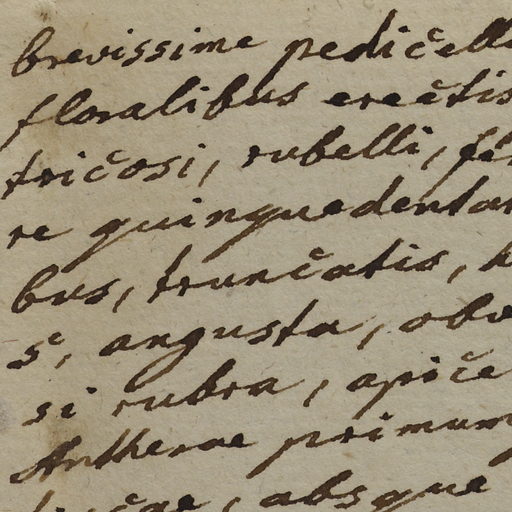 brevissime pedicell
floralibus erectis
tricosi, rubelli,
re quinquedentat
bus, truncatis,
5, angusta, obo
si rubra, apice
Antherae primum
absque